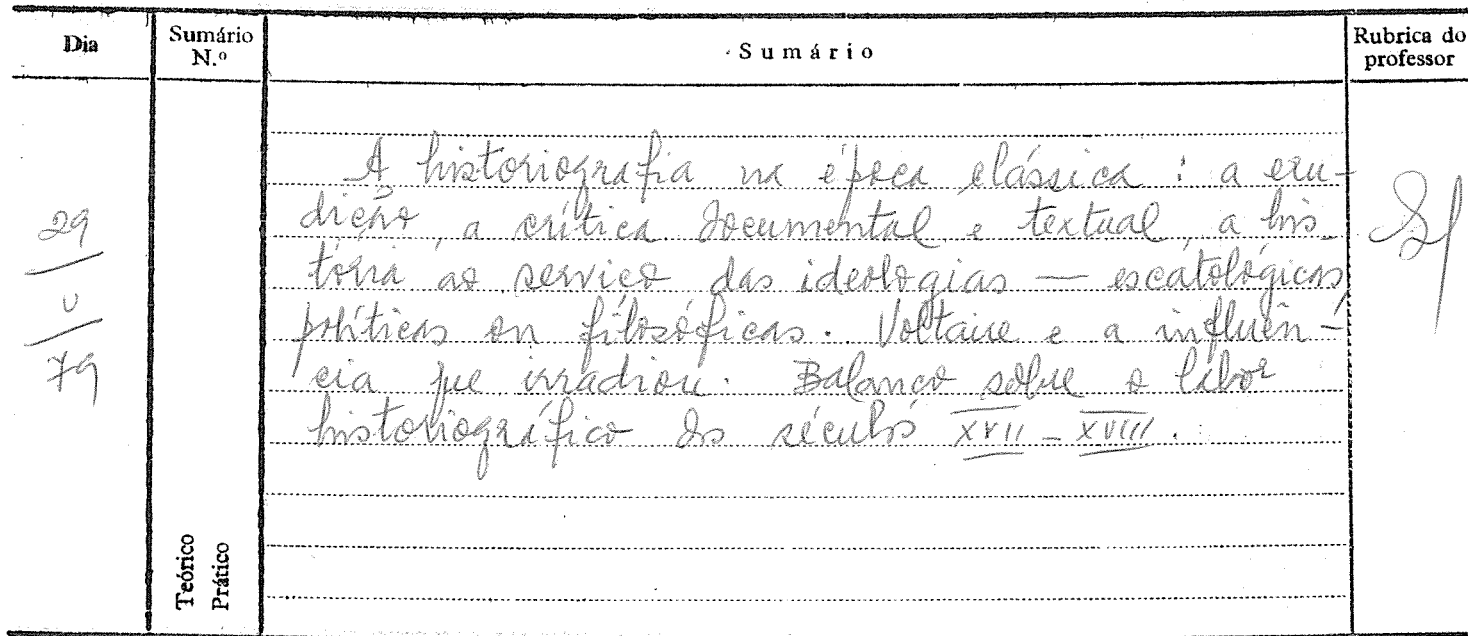 Dia
Sumário N.º
Sumário
Rubrica do professor
A historiografia na época clássica : a eru-
dição, a crítica documental e textual, a his-
tória ao serviço das ideologias — escatológicas,
políticas ou filosóficas. Voltaire e a influên-
cia que irradiou. Balanço sobre o labor
historiográfico dos séculos XVII - XVIII.
29
V
79
Teórico
Prático